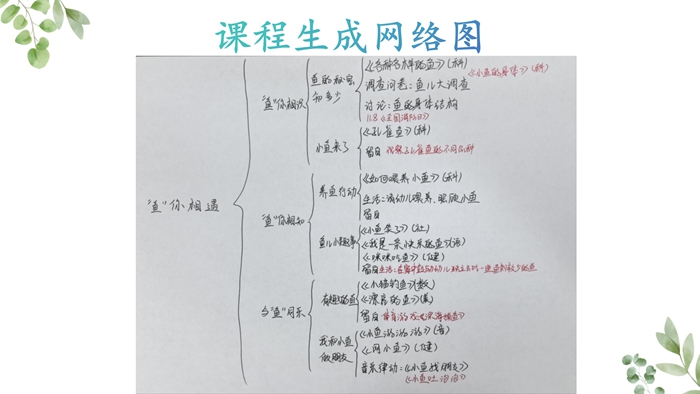 课程生成网络图
"渔"你相遇
"渔"你相识
鱼的秘密
知多少
《各种各样的鱼》(科)
《小鱼的身体》(科)
调查问卷：鱼儿大调查
讨论：鱼的身体结构
11.8《全国消防日》
小鱼来了
《孔雀鱼》(科)
留白 观察孔雀鱼的不同品种
"渔"你相知
养鱼行动
《如何喂养小鱼》(科)
生活：请幼儿喂养、照顾小鱼
留白
鱼儿小趣事
《小鱼生病了》(社)
《我是一条快乐的鱼》(语)
《小猫吃鱼》(健)
留白 生活：
与"渔"同乐
有趣的鱼
《小猫钓鱼》(数)
《漂亮的鱼》(美)
留白 体育游戏
我和小鱼
做朋友
《小鱼游游游》(音)
《网小鱼》(健)
音乐律动：《小鱼找朋友》
《小鱼吐泡泡》